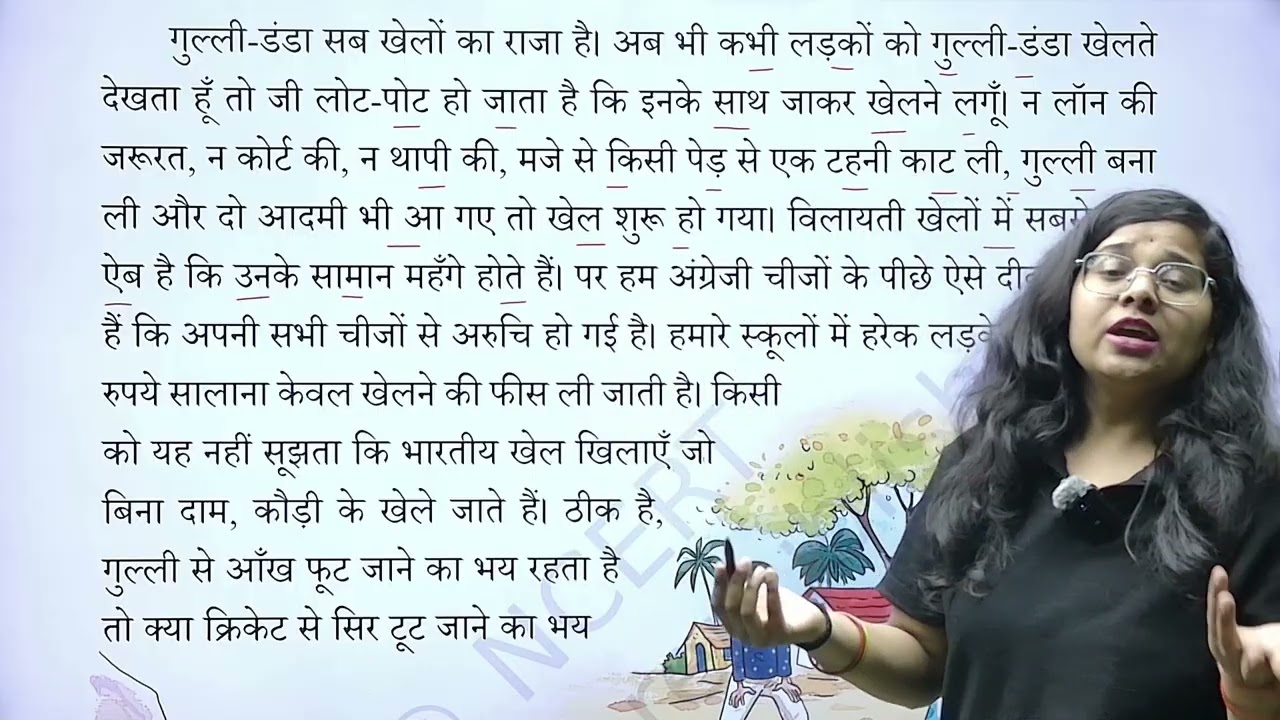 गुल्ली-डंडा सब खेलों का राजा है। अब भी कभी लड़कों को गुल्ली-डंडा खेलते
देखता हूँ तो जी लोट-पोट हो जाता है कि इनके साथ जाकर खेलने लगूँ। न लॉन की
जरूरत, न कोर्ट की, न थापी की, मजे से किसी पेड़ से एक टहनी काट ली, गुल्ली बना
ली और दो आदमी भी आ गए तो खेल शुरू हो गया। विलायती खेलों में
ऐब है कि उनके सामान महँगे होते हैं। पर हम अंग्रेजी चीजों के पीछे ऐसे
हैं कि अपनी सभी चीजों से अरुचि हो गई है। हमारे स्कूलों में हरेक
रुपये सालाना केवल खेलने की फीस ली जाती है। किसी
को यह नहीं सूझता कि भारतीय खेल खिलाएँ जो
बिना दाम, कौड़ी के खेले जाते हैं। ठीक है,
गुल्ली से आँख फूट जाने का भय रहता है
तो क्या क्रिकेट से सिर टूट जाने का भय
NCERT